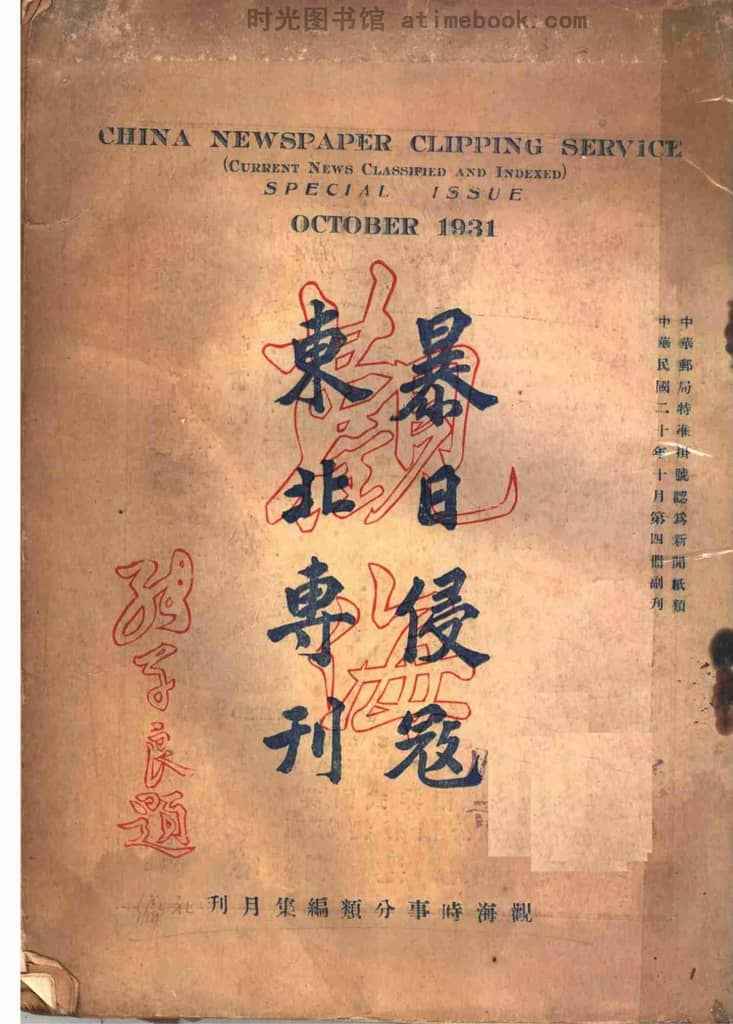 时光图书馆 atimebook.com
CHINA NEWSPAPER CLIPPING SERVICE
(CURRENT NEWS CLASSIFIED AND INDEXED)
SPECIAL ISSUE
OCTOBER 1931
中華郵局特准掛號認爲新聞紙類
中華民國二十年十月第四價副刊
暴日侵寇
東北專刊
觀海
良題
刊月集編類分事時海觀